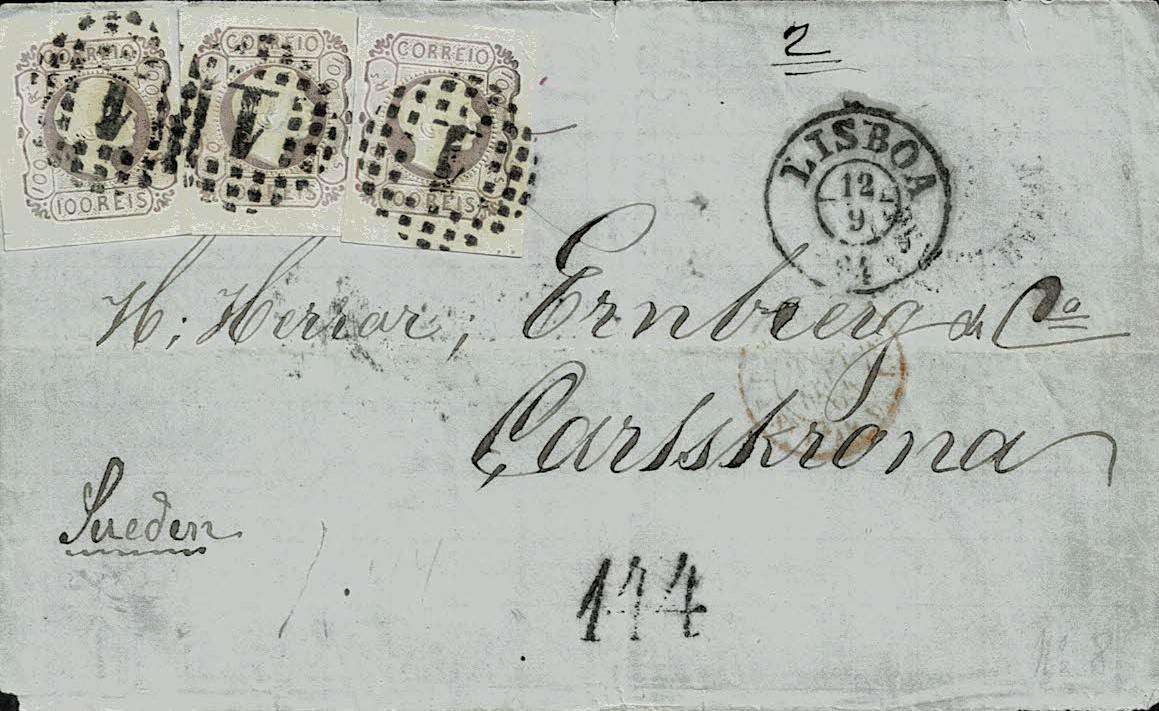 CORREIO
100 RS
100 REIS
1
CORREIO
100 REIS
1
CORREIO
100 REIS
1
2
LISBOA
12
9
64
H. Herrar,; Ernberg & Cª
Carlskrona
Sueden
174